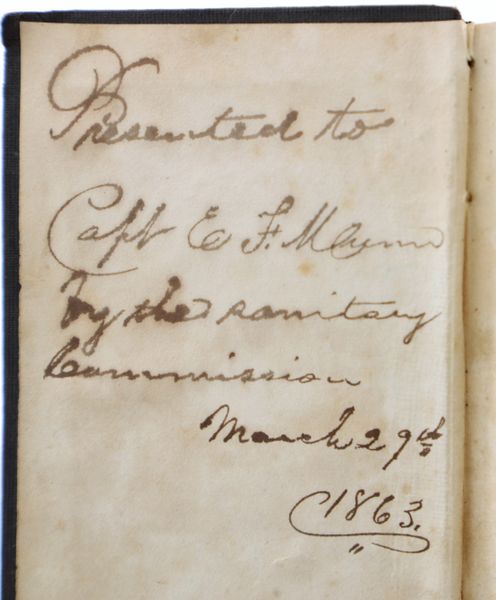 Presented to
Capt E F. Munn
by the sanitary
Commission
March 29th
1863.